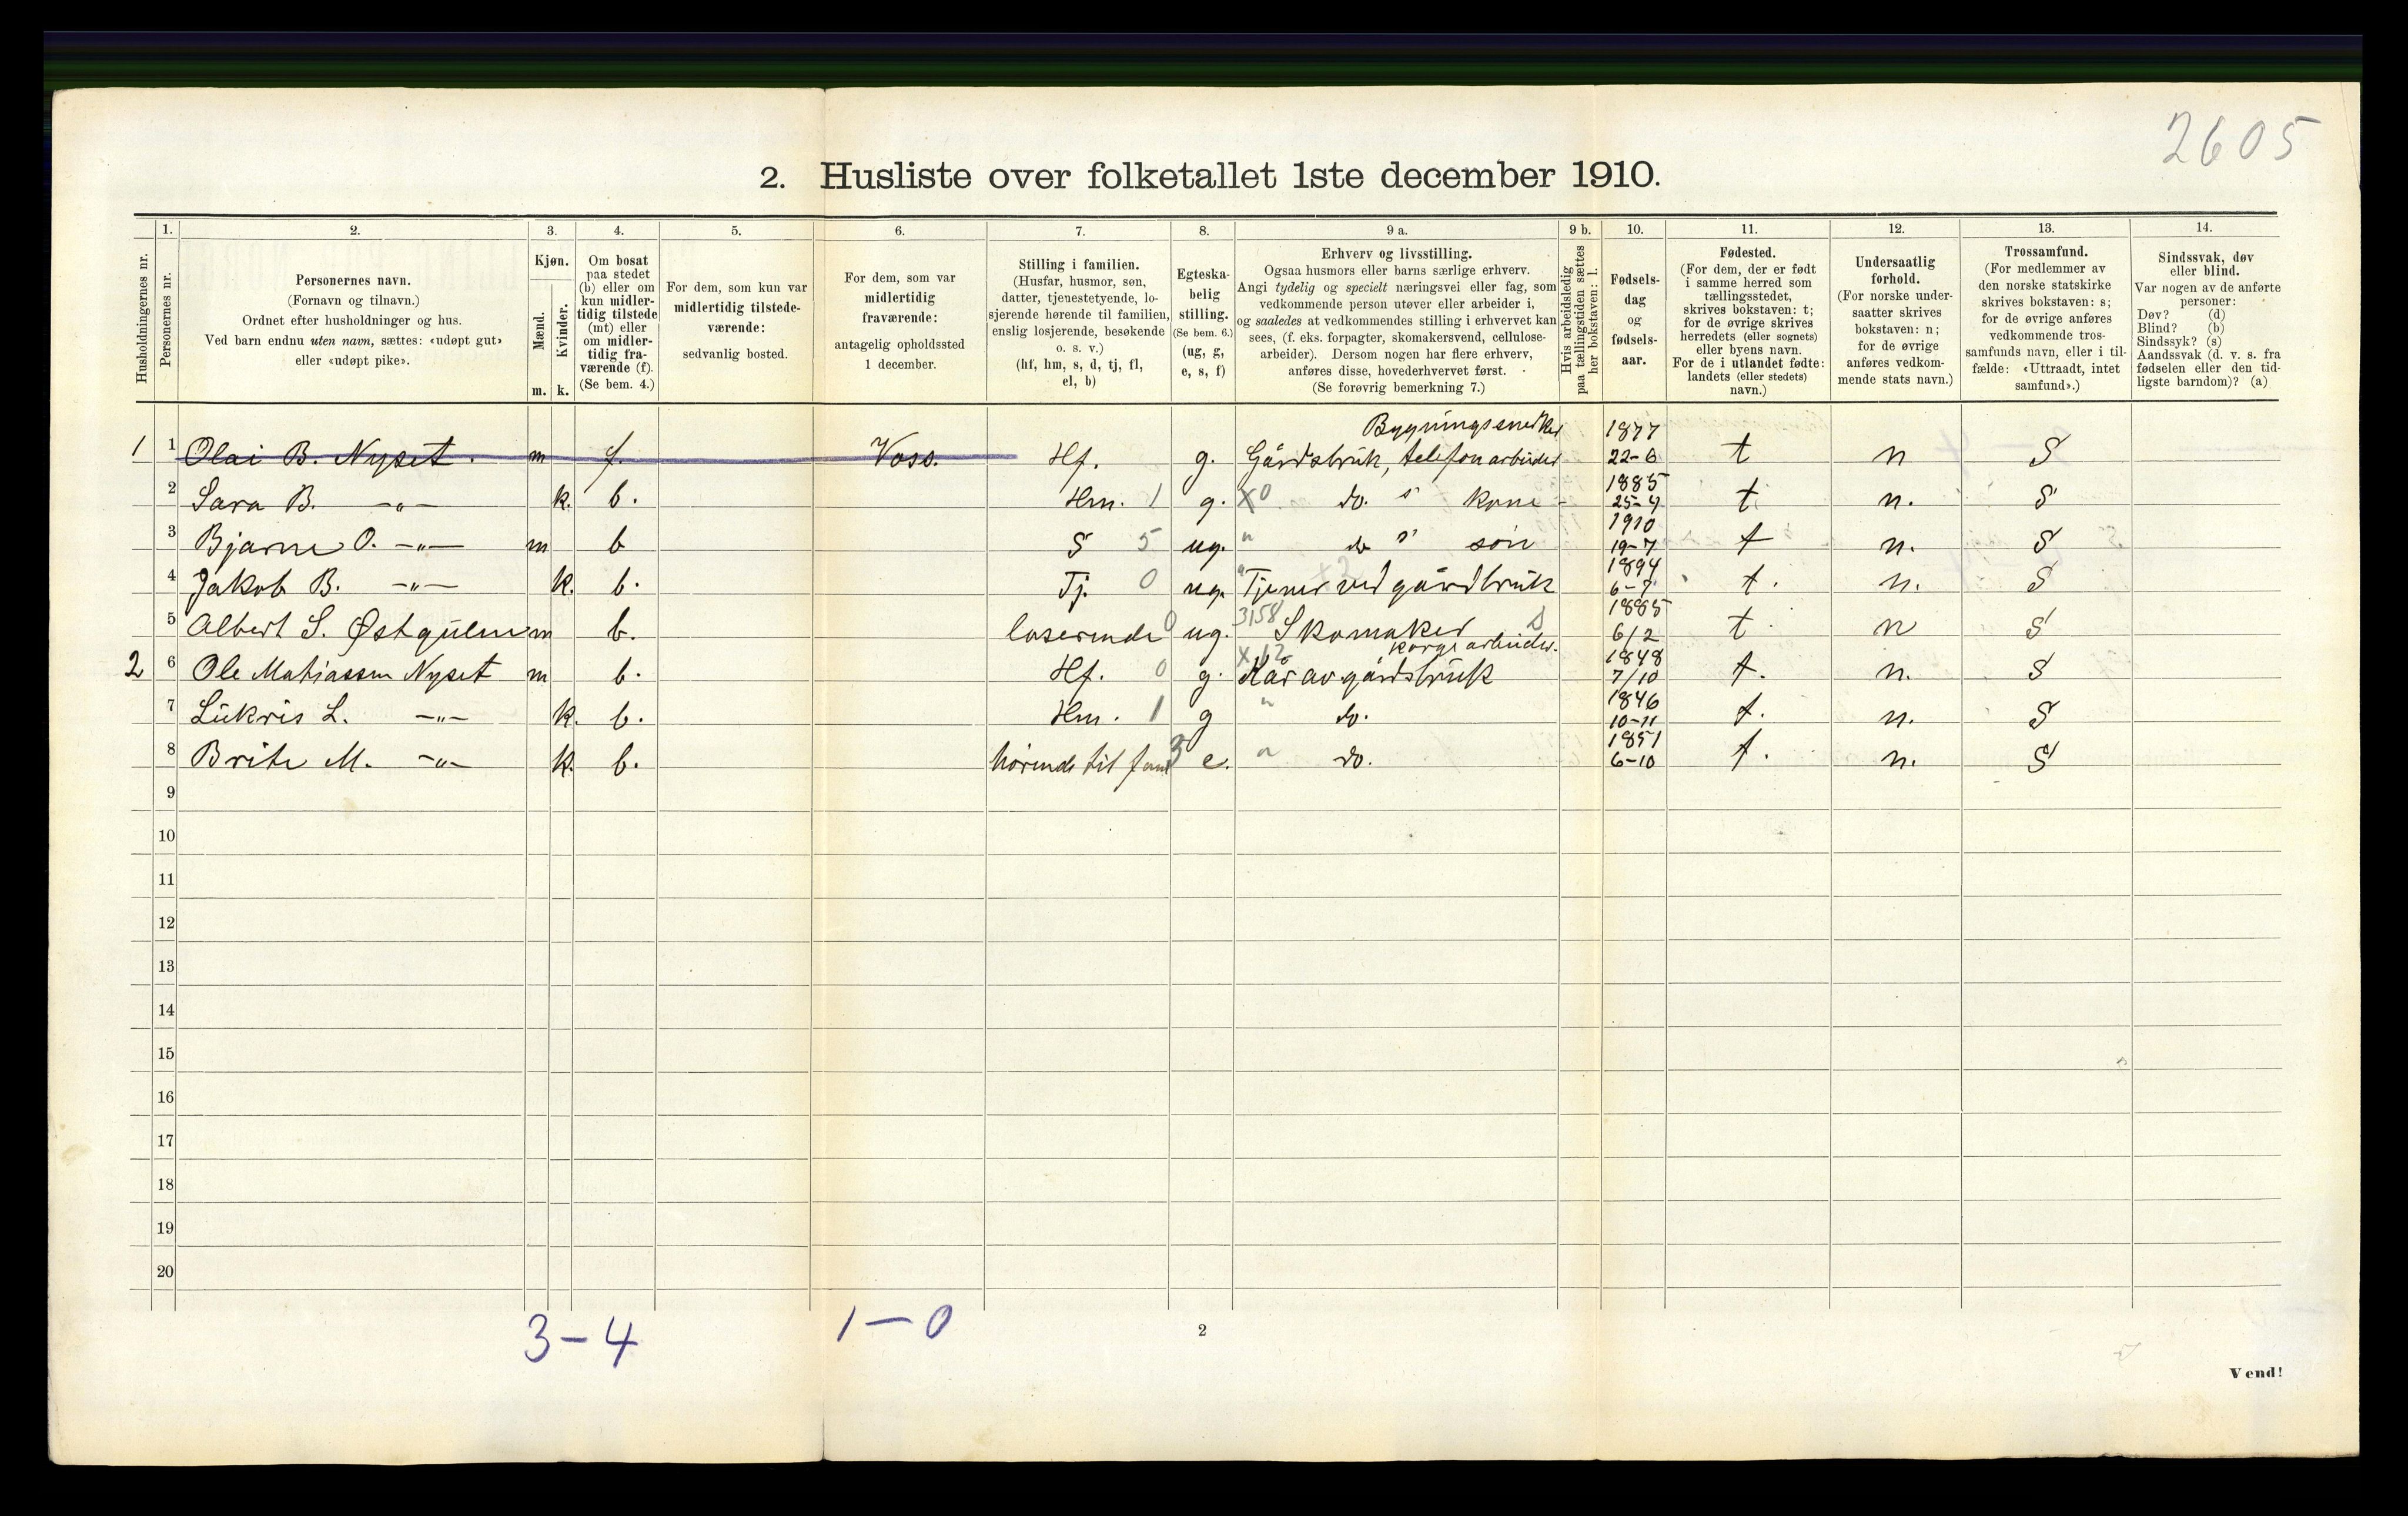 2605
2. Husliste over folketallet 1ste december 1910.
Husholdningernes nr.
1. Personernes nr.
2. Personernes navn. (Fornavn og tilnavn.) Ordnet efter husholdninger og hus. Ved barn endnu uten navn, sættes: «udøpt gut» eller «udøpt pike».
3. Kjøn. Mænd. m. Kvinder. k.
4. Om bosat paa stedet (b) eller om kun midlertidig tilstede (mt) eller om midlertidig fraværende (f). (Se bem. 4.)
5. For dem, som kun var midlertidig tilstedeværende: sedvanlig bosted.
6. For dem, som var midlertidig fraværende: antagelig opholdssted 1 december.
7. Stilling i familien. (Husfar, husmor, søn, datter, tjenestetyende, losjerende hørende til familien, enslig losjerende, besøkende o. s. v.) (hf, hm, s, d, tj, fl, el, b)
8. Egteskabelig stilling. (Se bem. 6.) (ug, g, e, s, f)
9 a. Erhverv og livsstilling. Ogsaa husmors eller barns særlige erhverv. Angi tydelig og specielt næringsvei eller fag, som vedkommende person utøver eller arbeider i, og saaledes at vedkommendes stilling i erhvervet kan sees, (f. eks. forpagter, skomakersvend, cellulosearbeider). Dersom nogen har flere erhverv, anføres disse, hovederhvervet først. (Se forøvrig bemerkning 7.)
9 b. Hvis arbeidsledig paa tællingstiden sættes her bokstaven: l.
10. Fødselsdag og fødselsaar.
11. Fødested. (For dem, der er født i samme herred som tællingsstedet, skrives bokstaven: t; for de øvrige skrives herredets (eller sognets) eller byens navn. For de i utlandet fødte: landets (eller stedets) navn.)
12. Undersaatlig forhold. (For norske undersaatter skrives bokstaven: n; for de øvrige anføres vedkommende stats navn.)
13. Trossamfund. (For medlemmer av den norske statskirke skrives bokstaven: s; for de øvrige anføres vedkommende trossamfunds navn, eller i tilfælde: «Uttraadt, intet samfund».)
14. Sindssvak, døv eller blind. Var nogen av de anførte personer: Døv? (d) Blind? (b) Sindssyk? (s) Aandssvak (d. v. s. fra fødselen eller den tidligste barndom)? (a)
1 1 Olai B. Nyset. m f. Voss. Hf. g. Bygningssnedker Gårdsbrük, telefonarbeider 1877 22-6 t n S
2 Sara B. -"- k. b. Hm. 1 g. X0 do. s kone - 1885 25-4 t. n. S
3 Bjarne O. -"- m b S 5 ug. " do s søn 1910 19-7 t n. S
4 Jakob B. -"- k. b. Tj. 0 ug. " Tjener ved gårdbrük 1894 6-7 t. n. S
5 Albert S. Østgülen m b. loserende 0 ug. 3158 Skomaker 1885 6/2 t. n S
2 6 Ole Matiassen Nyset m b. Hf. 0 g. X12 Kår av gårdsbrük korgearbeider. 1848 7/10 t. n. S
7 Lükris L. -"- k. b. Hm. 1 g " do. 1846 10-11 t. n. S
8 Brite M. -"- k. b. hørende til fam 3 e. " do. 1851 6-10 t. n. S
9
10
11
12
13
14
15
16
17
18
19
20
3-4 1-0
2
Vend!